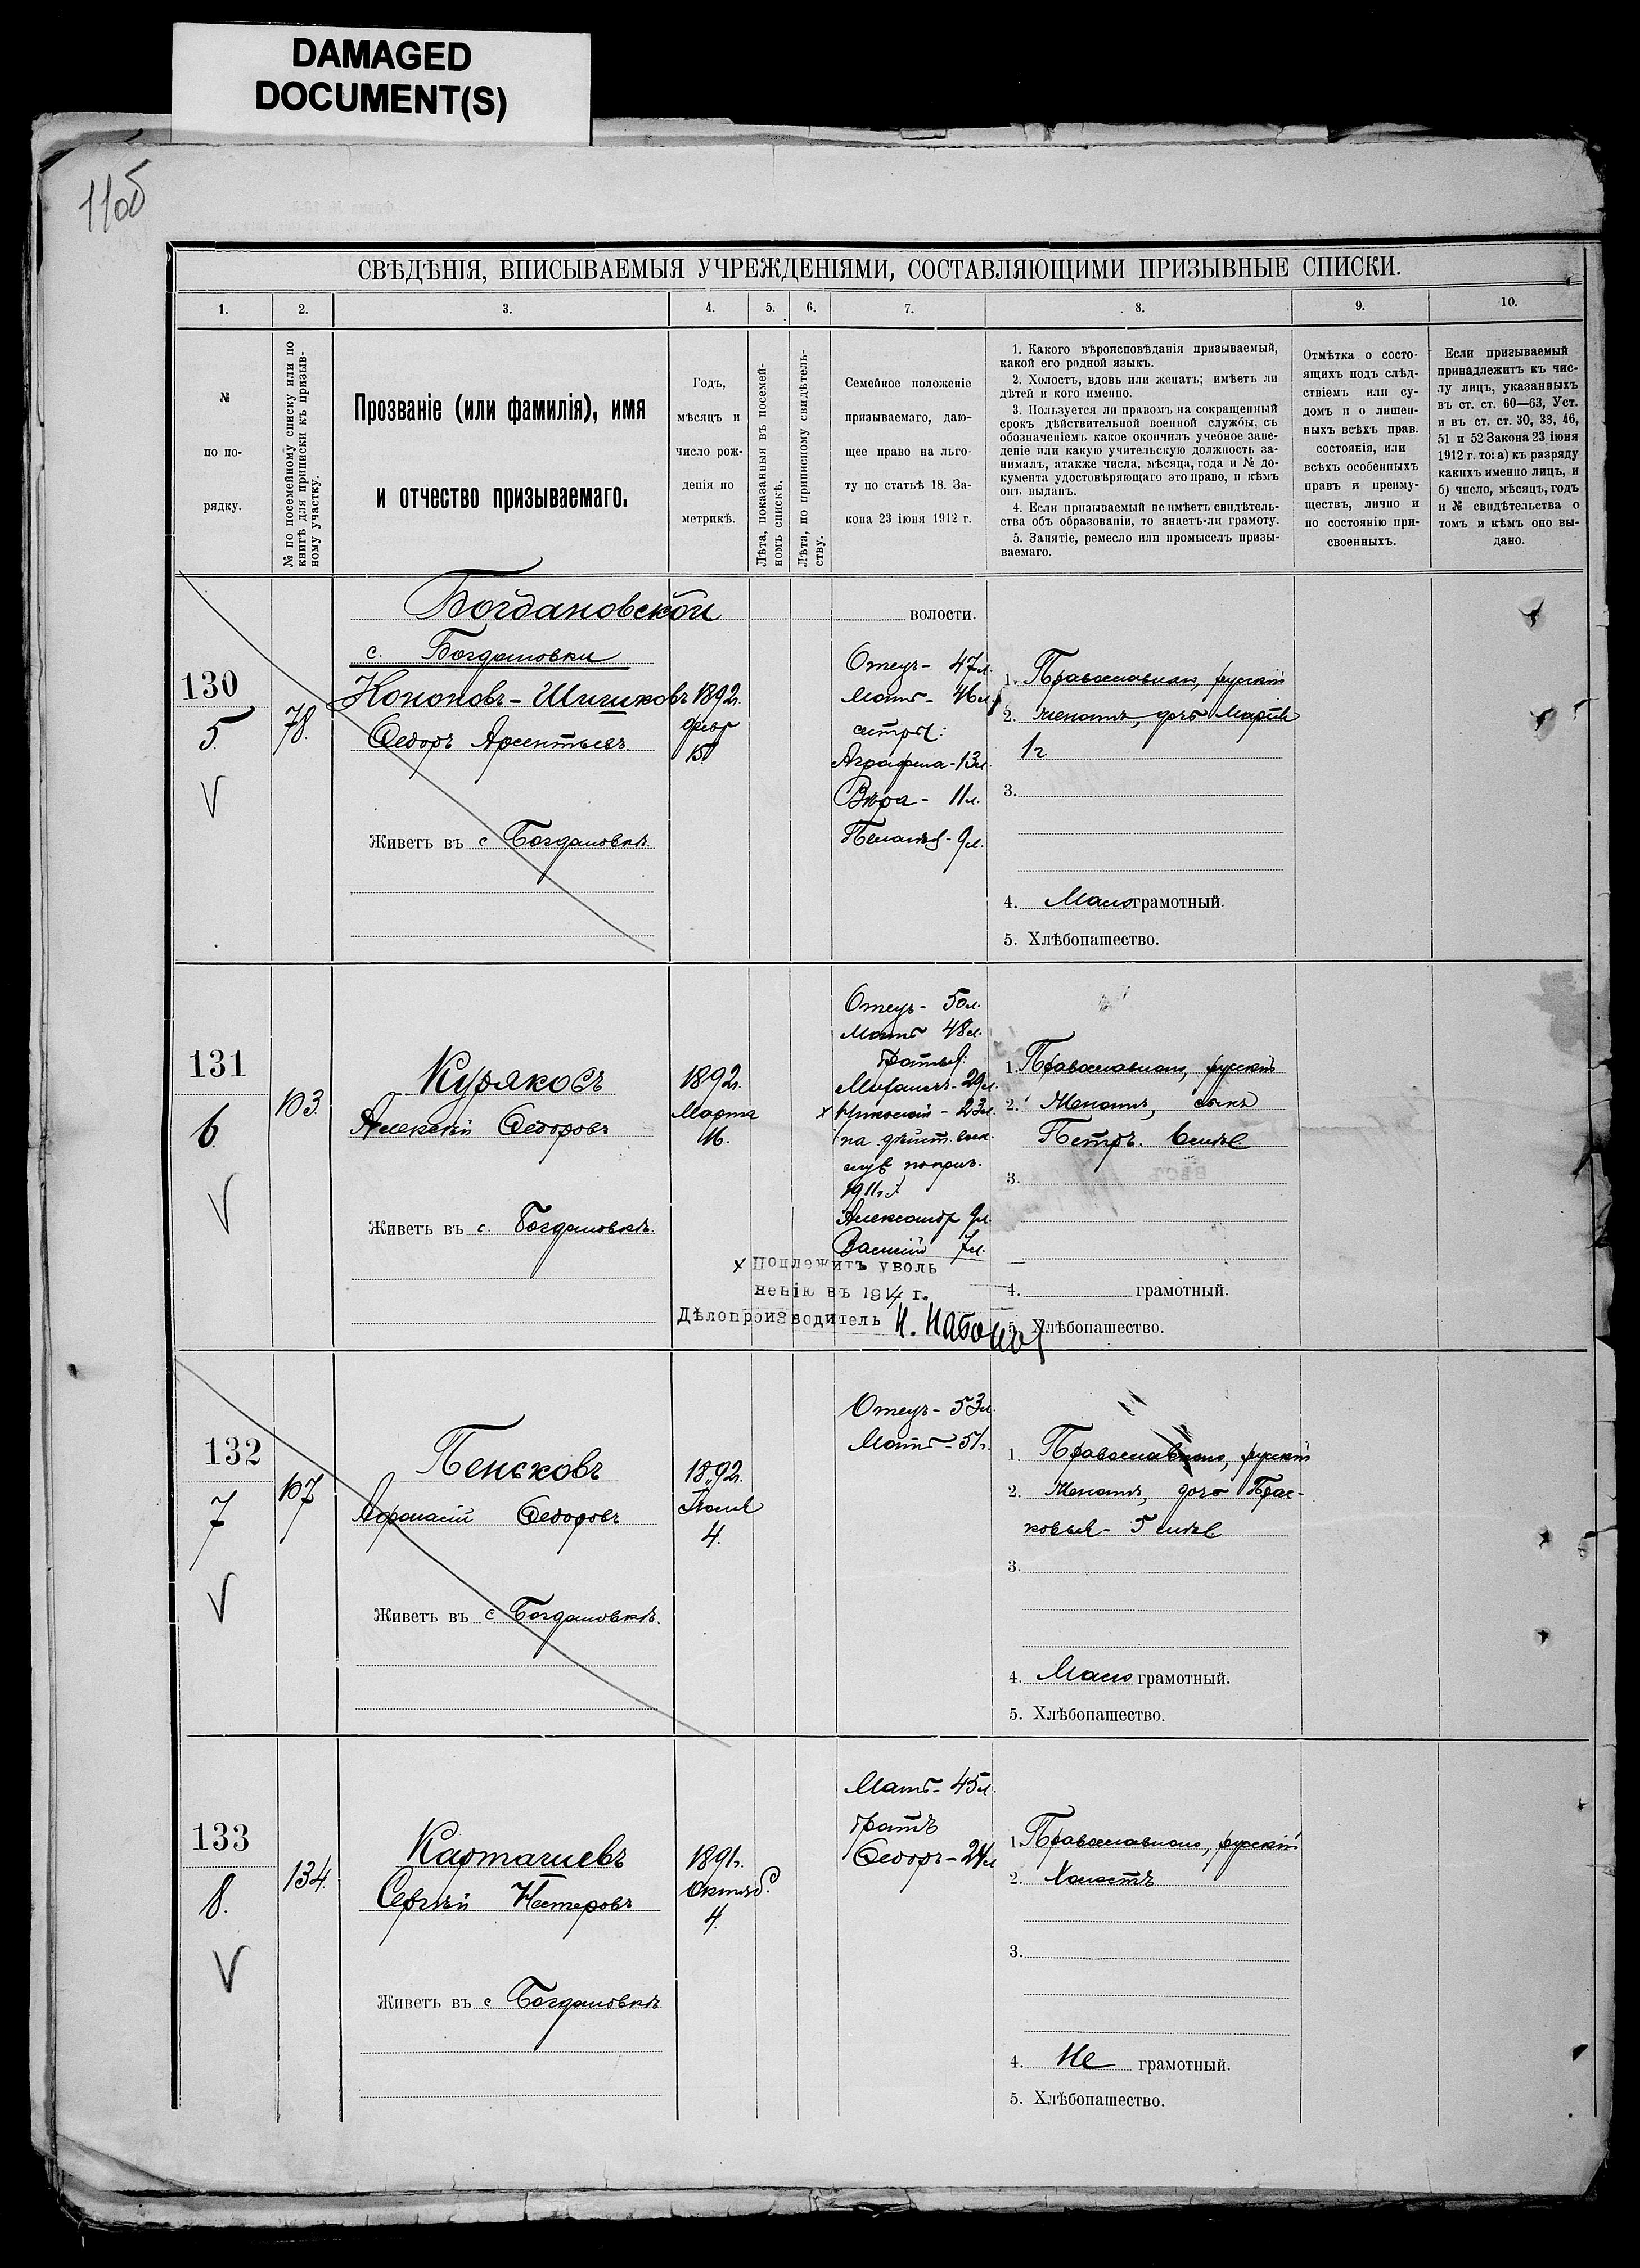 DAMAGED
DOCUMENT(S)
110б
СВѢДѢНІЯ, ВПИСЫВАЕМЫЯ УЧРЕЖДЕНІЯМИ, СОСТАВЛЯЮЩИМИ ПРИЗЫВНЫЕ СПИСКИ.
1. 2. 3. 4. 5. 6. 7. 8. 9. 10.
№
по по-
рядку.
№ по посемейному списку или по
книгѣ для приписки къ призыв-
ному участку.
Прозваніе (или фамилія), имя
и отчество призываемаго.
Годъ,
мѣсяцъ и
число рож-
денія по
метрикѣ.
Лѣта, показанныя въ посемей-
номъ спискѣ.
Лѣта, по приписному свидѣтель-
ству.
Семейное положеніе
призываемаго, даю-
щее право на льго-
ту по статьѣ 18. За-
кона 23 іюня 1912 г.
1. Какого вѣроисповѣданія призываемый,
какой его родной языкъ.
2. Холостъ, вдовъ или женатъ; имѣетъ ли
дѣтей и кого именно.
3. Пользуется ли правомъ на сокращенный
срокъ дѣйствительной военной службы, съ
обозначеніемъ какое окончилъ учебное заве-
деніе или какую учительскую должность за-
нималъ, атакже числа, мѣсяца, года и № до-
кумента удостовѣряющаго это право, и кѣмъ
онъ выданъ.
4. Если призываемый не имѣетъ свидѣтель-
ства объ образованіи, то знаетъ-ли грамоту.
5. Занятіе, ремесло или промыселъ призы-
ваемаго.
Отмѣтка о состо-
ящихъ подъ слѣд-
ствіемъ или су-
домъ и о лишен-
ныхъ всѣхъ прав.
состоянія, или
всѣхъ особенныхъ
правъ и преиму-
ществъ, лично и
по состоянію при-
своенныхъ.
Если призываемый
принадлежитъ къ чис-
лу лицъ, указанныхъ
въ ст. ст. 60—63, Уст.
и въ ст. ст. 30, 33, 46,
51 и 52 Закона 23 іюня
1912 г. то: а) къ разряду
какихъ именно лицъ, и
б) число, мѣсяцъ, годъ
и № свидѣтельства о
томъ и кѣмъ оно вы-
дано.
Богдановской волости.
с. Богдановки
130
5.
V
78.
Кононовъ-Шишковъ
Ѳедоръ Арсентьевъ
Живетъ въ с Богдановкѣ
1892г.
февр
15
Отецъ - 47л.
Мать - 46л.
сестры:
Аграфена - 13л.
Вѣра - 11л.
Пелагѣя - 9л.
1. Православнаго, русскій
2. Женатъ, дочь Марія
1г.
3.
4. Малограмотный.
5. Хлѣбопашество.
131
6.
V
103.
Куряковъ
Алексѣй Ѳедоровъ
Живетъ въ с. Богдановкѣ.
1892г.
Марта
16.
Отецъ - 50л.
Мать 48л.
братья:
Михаилъ - 29л.
х Николай - 23л.
на дѣйст. воен.
служ по приз.
1911г.
Александр 9л.
Василій 7л.
х Подлежитъ уволь
ненію въ 1914 г.
Дѣлопроизводитель
1. Православнаго, русскій
2. Женатъ, сынъ
Петръ. 6 мѣс
3.
4. грамотный.
5. Хлѣбопашество.
132
7
V
107
Пеньковъ
Афанасій Ѳедоровъ
Живетъ въ с Богдановкѣ.
1892г.
Іюля
4.
Отецъ - 53л.
Мать - 51г.
1. Православнаго, русскій
2. Женатъ, дочь Прас-
ковья - 5 мѣс
3.
4. Мало грамотный.
5. Хлѣбопашество.
133
8.
V
134.
Карташевъ
Сергѣй Нестеровъ
Живетъ въ с Богдановкѣ
1891г.
Октяб.
4.
Мать - 45л.
братъ
Ѳедоръ - 24л
1. Православнаго, русскій
2. Холостъ
3.
4. Не грамотный.
5. Хлѣбопашество.